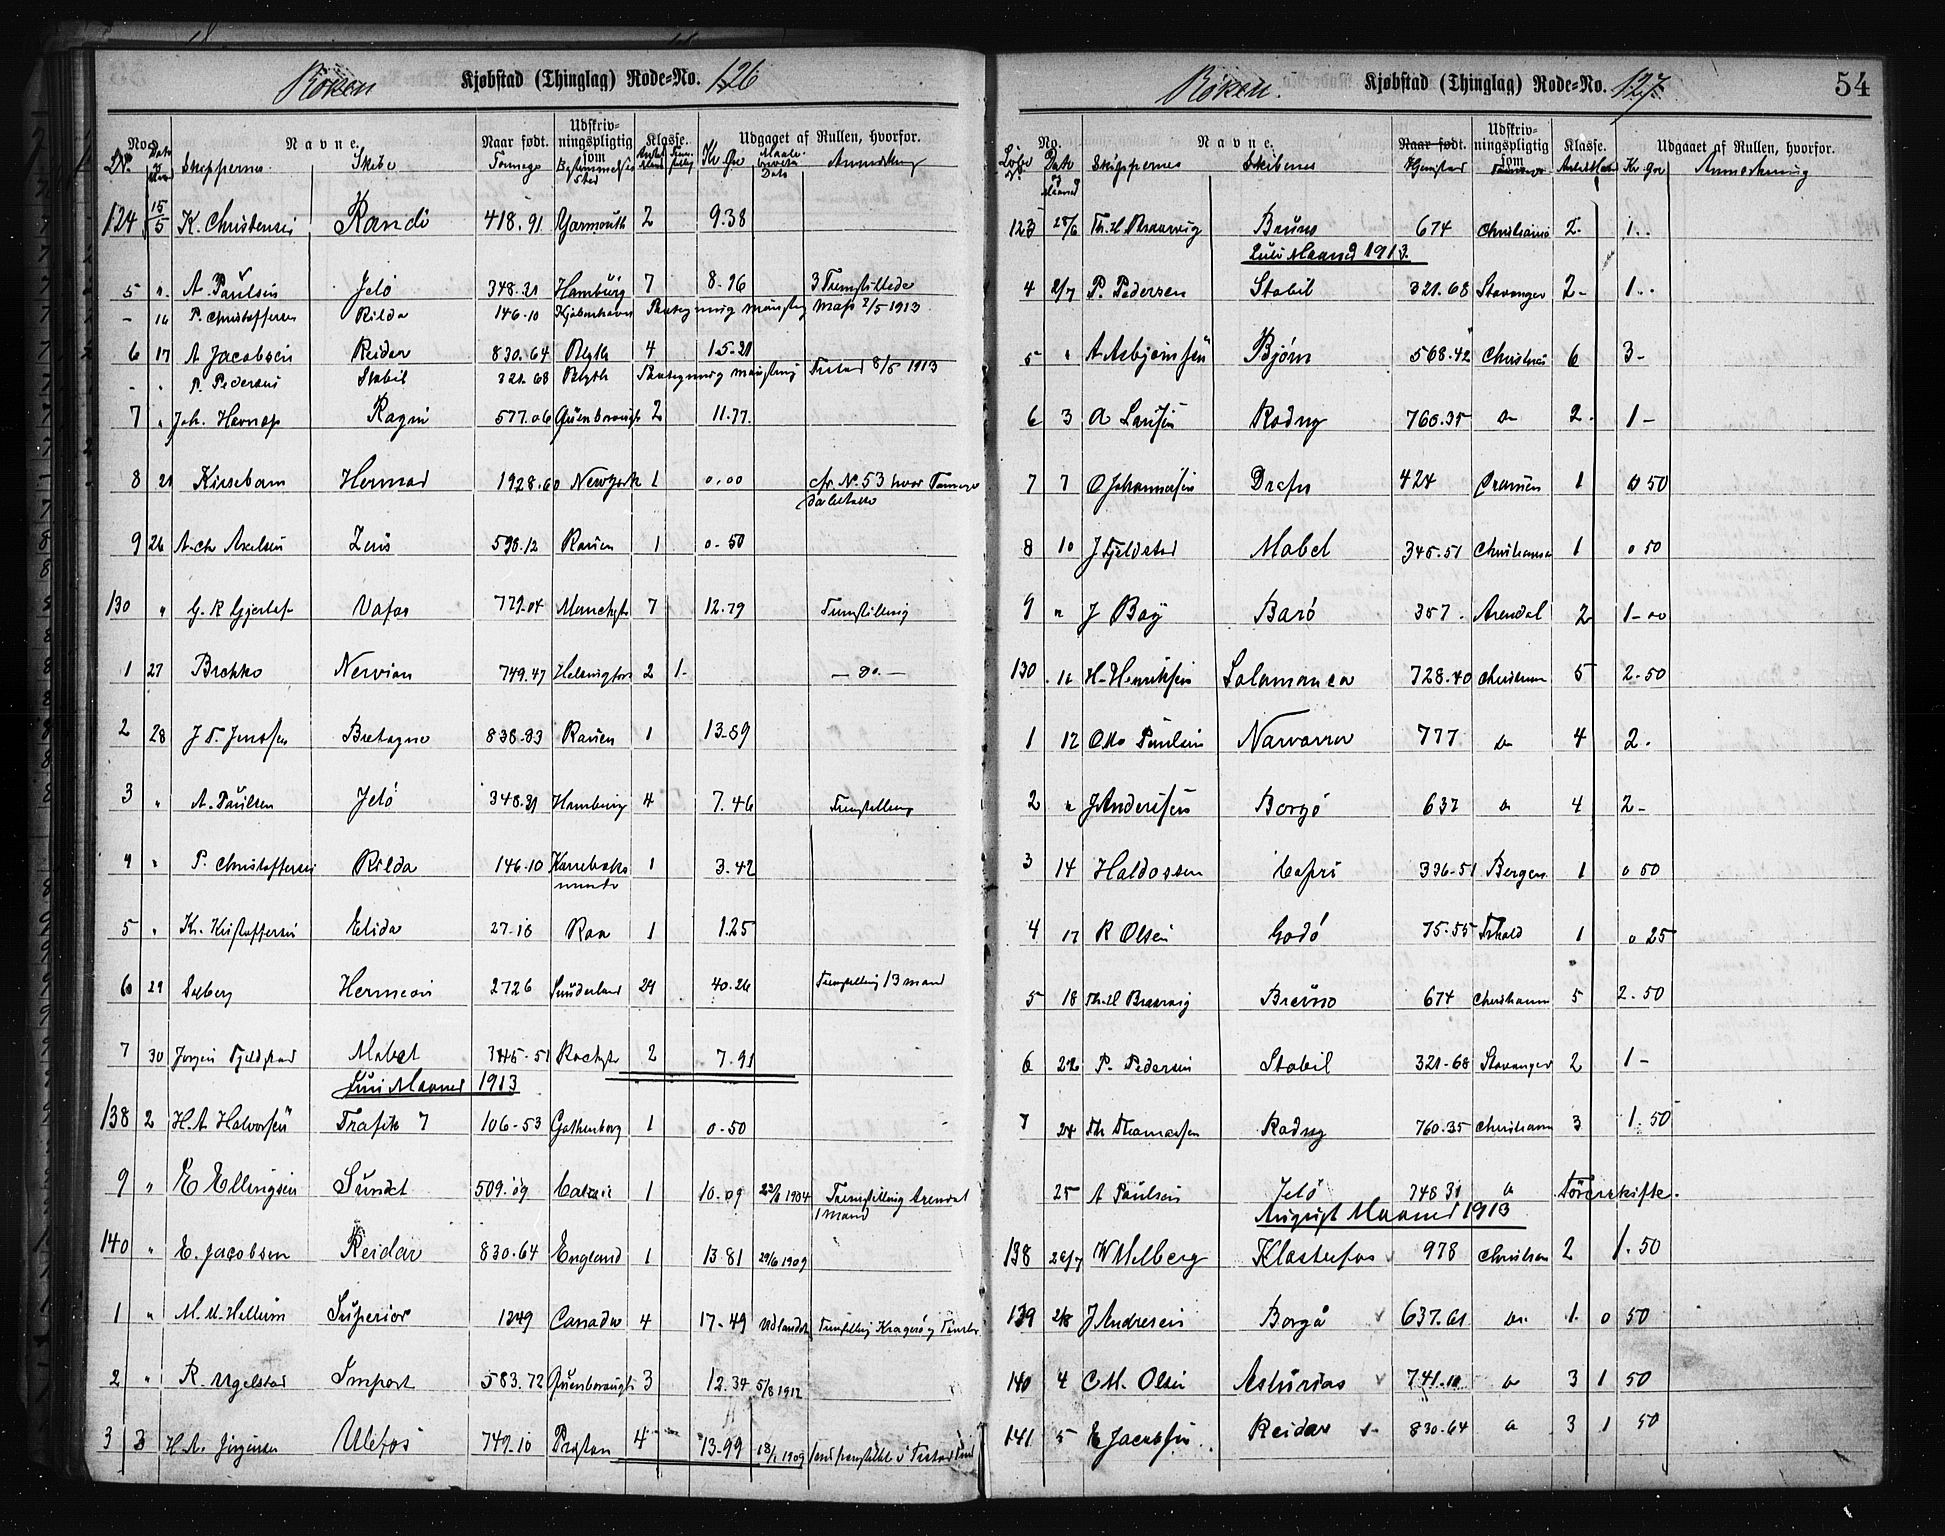 Röken Kjøbstad (Thinglag) Rode-No. 126
No. Navne. Naar født. Udskriv-ningspligtig som Klasse. Udgaaet af Rullen, hvorfor.
Skippernes Skibe Tonnage Bestemmelses sted Kr Øre Dato Anmerkning
124 15/5 K. Christensen Randi 418.91 Yarmouth 2 9.38
5 " A. Paulsen Jelö 348.31 Hamburg 7 8.96 3 Fremstillede
– 16 P. Christoffersen Rilda 146.10 Kjøbenhavn Paategning mønstring Moss 2/5 1913
6 17 A Jacobsen Reidar 830.64 Blyth 4 15.21
- " P. Pedersen Stabil 321.68 Blyth Paategning mønstring 8/5 1913
7 " Joh. Ragni 577.06 Quenborough 2 11.77
8 21 Kissebom Hermod 1928.60 Newyork 1 0.00 cfr. No. 53 hvor Tonnage
9 26 A. Chr Axelsen 598.12 Rouen 1 0-50
130 " G. R Gjertsen Vafos 779.04 Manchester 7 12.79 Fremstilling
1 27 Brekko Nervion 749.47 Helsingfors 2 1- — do. —
2 28 J. F. Jensen Bretagne 838.33 Rouen 1 13-59
3 " A. Paulsen Jelö 348.31 Hamburg 4 7.46 Fremstilling
4 " P. Christoffersen Rilda 146.10 Karrebæks 1 3.42
minde
5 " Kr. Kristoffersen Elida 27.18 Raa 1 1.25
6 29 Solberg Hermion 2726 Sunderland 29 40.26 Fremstilling 13 mand
7 30 Jørgen Fjeldstad Mabel 345.51 Rochester 2 7.91
Juni Maaned 1913
138 2 H. A Halvorsen Trafik 7 106-53 Gothenborg 1 0-50
9 " E Ellingsen Sundet 509.09 Calais 1 10.09 1904 Fremstilling Arendal
1 mand
140 " E. Jacobsen Reidar 830.64 England 1 13.81 29/6 1909
1 " M. M. Hellum Superior 1249 Canada 4 17-49 Udlandet Fremstilling Kragerö
2 " R. Ugelstad Import 583.72 Quenborough 3 12.34 5/8 1912
3 3 H. A. Jörgensen Ulefos 749.10 Preston 4 13.99 18/1 1909
Röken. Kjøbstad (Thinglag) Rode-No. 127. 54
No. Navne. Naar født. Udskriv-ningspligtig som Klasse. Udgaaet af Rullen, hvorfor.
Løbe No. Dato og Maaned Skippernes Skibenes Hjemsted Kr Øre Anmerkning
123 28/6 Th. H Braarvig Bruno 674 Christiania 2. 1..
Juli Maaned 1913.
4 2/7 P. Pedersen Stabil 321.68 Stavanger 2- 1..
5 " A Asbjørnsen Bjørn 568.42 Christiania 6 3-
6 3 A Larsen Rodney 760.35 do 2. 1-
7 7 O Johannesen Drafn 424 Dramen 1 0 50
8 10 J Fjeldstad Mabel 345.51 Christiania 1 0 50
9 " J Boy Barö 357. Arendal 2 1-00
130 . 12 H. Henriksen Salamanca 728.40 Christiania 5 2-50
1 12 Otto Paulsen Navarra 777 do 4 2.
2 " J Andersen Borgå 637 do 4 2-
3 14 Haldossen Capri 336-51 Bergen 1 0 50
4 17 R Olsen Godö 75.55 1 0 25
5 18 Th. H Braarvig Bruno 674 Christiania 5 2.50
6 22 P. Pedersen Stabil 321-68 Stavanger 2 1-
7 24 Th Thomassen Rodney 760.35 Christiania 3 1.50
25 A Paulsen Jelö 348 31 do Förerskifte.
August Maaned 1913
138 28/7 W Melberg Klosterfos 978 Christiania 2 1.50
139 2/8 J Andresen Borgå 637.61 do. 1. 0 50
140 4 C M. Olsen Asturias 741.10 do 3 1 50
141 5 E Jacobsen Reidar 830.64 do 3 1 50